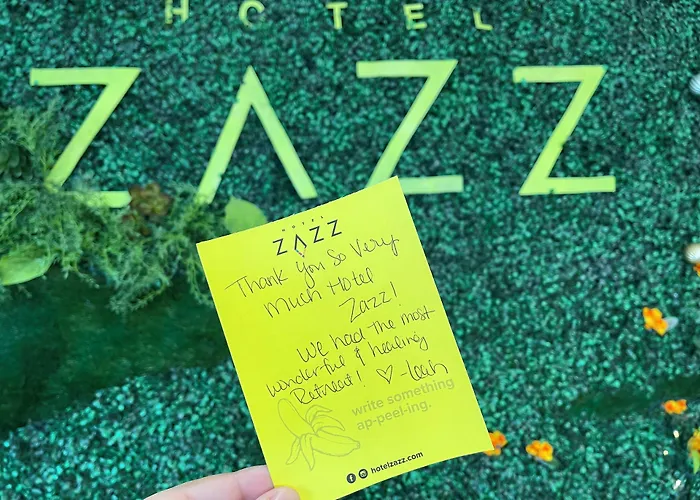 HOTEL
ZAZZ
HOTEL
ZAZZ
Thank You So Very
Much Hotel
Zazz!
We had the most
wonderful & healing
Retreat! ♡ -Leah
write something
ap-peel-ing.
hotelzazz.com